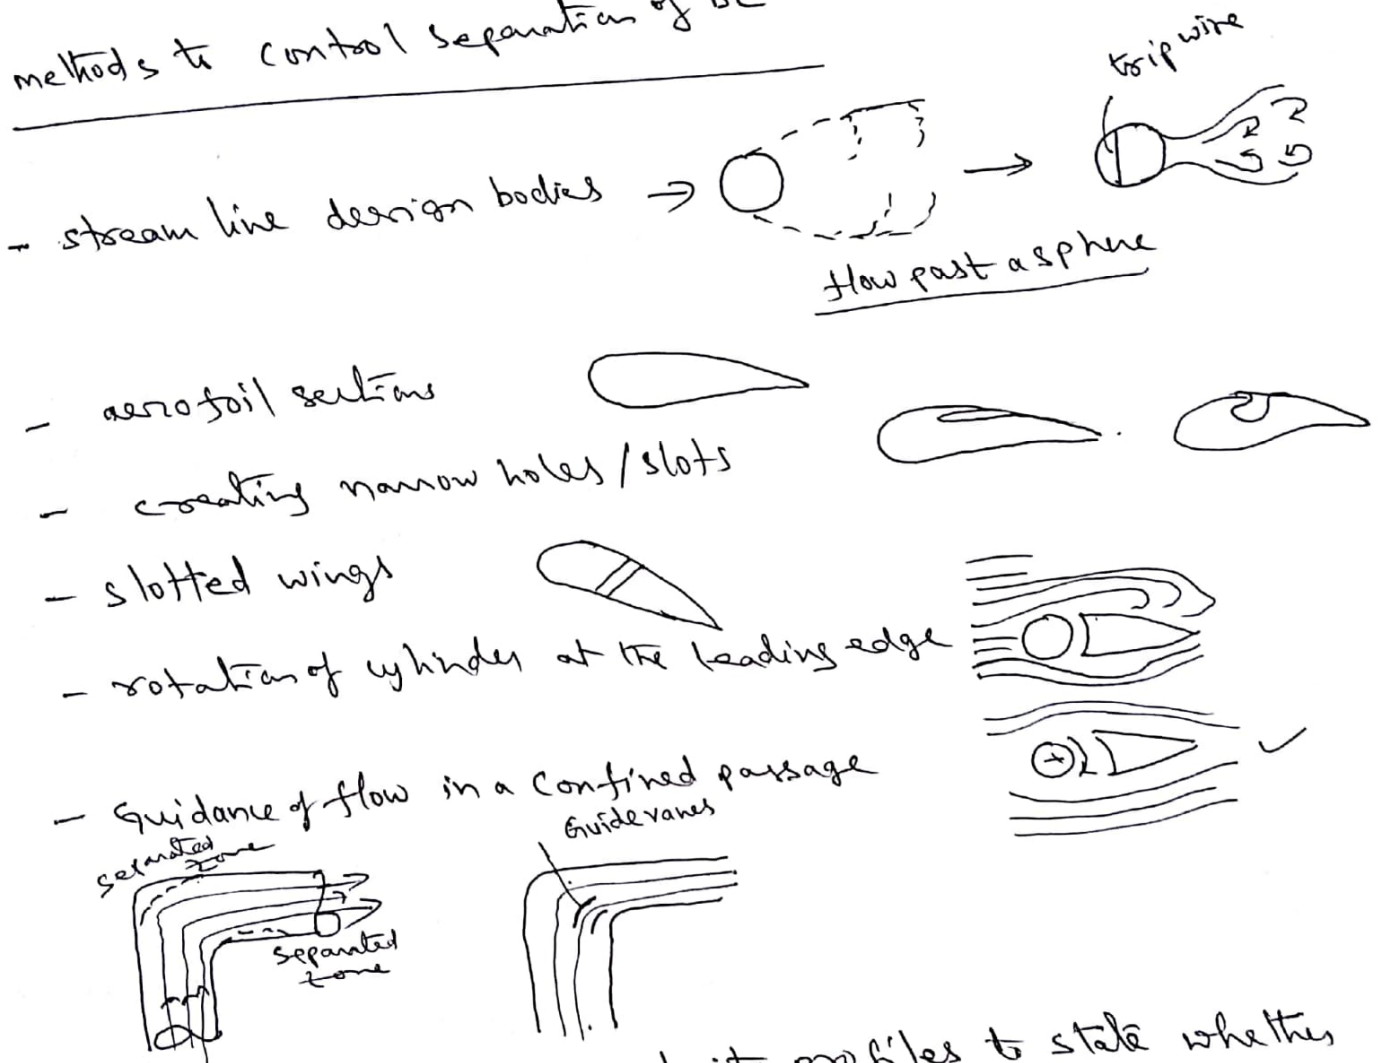 methods to control separation of BL
trip wire
- stream line design bodies →
flow past a sphere
- aerofoil sections
- creating narrow holes / slots
- slotted wings
- rotation of cylinder at the leading edge
- Guidance of flow in a confined passage
separated zone
Guide vanes
separated zone
profiles to state whether